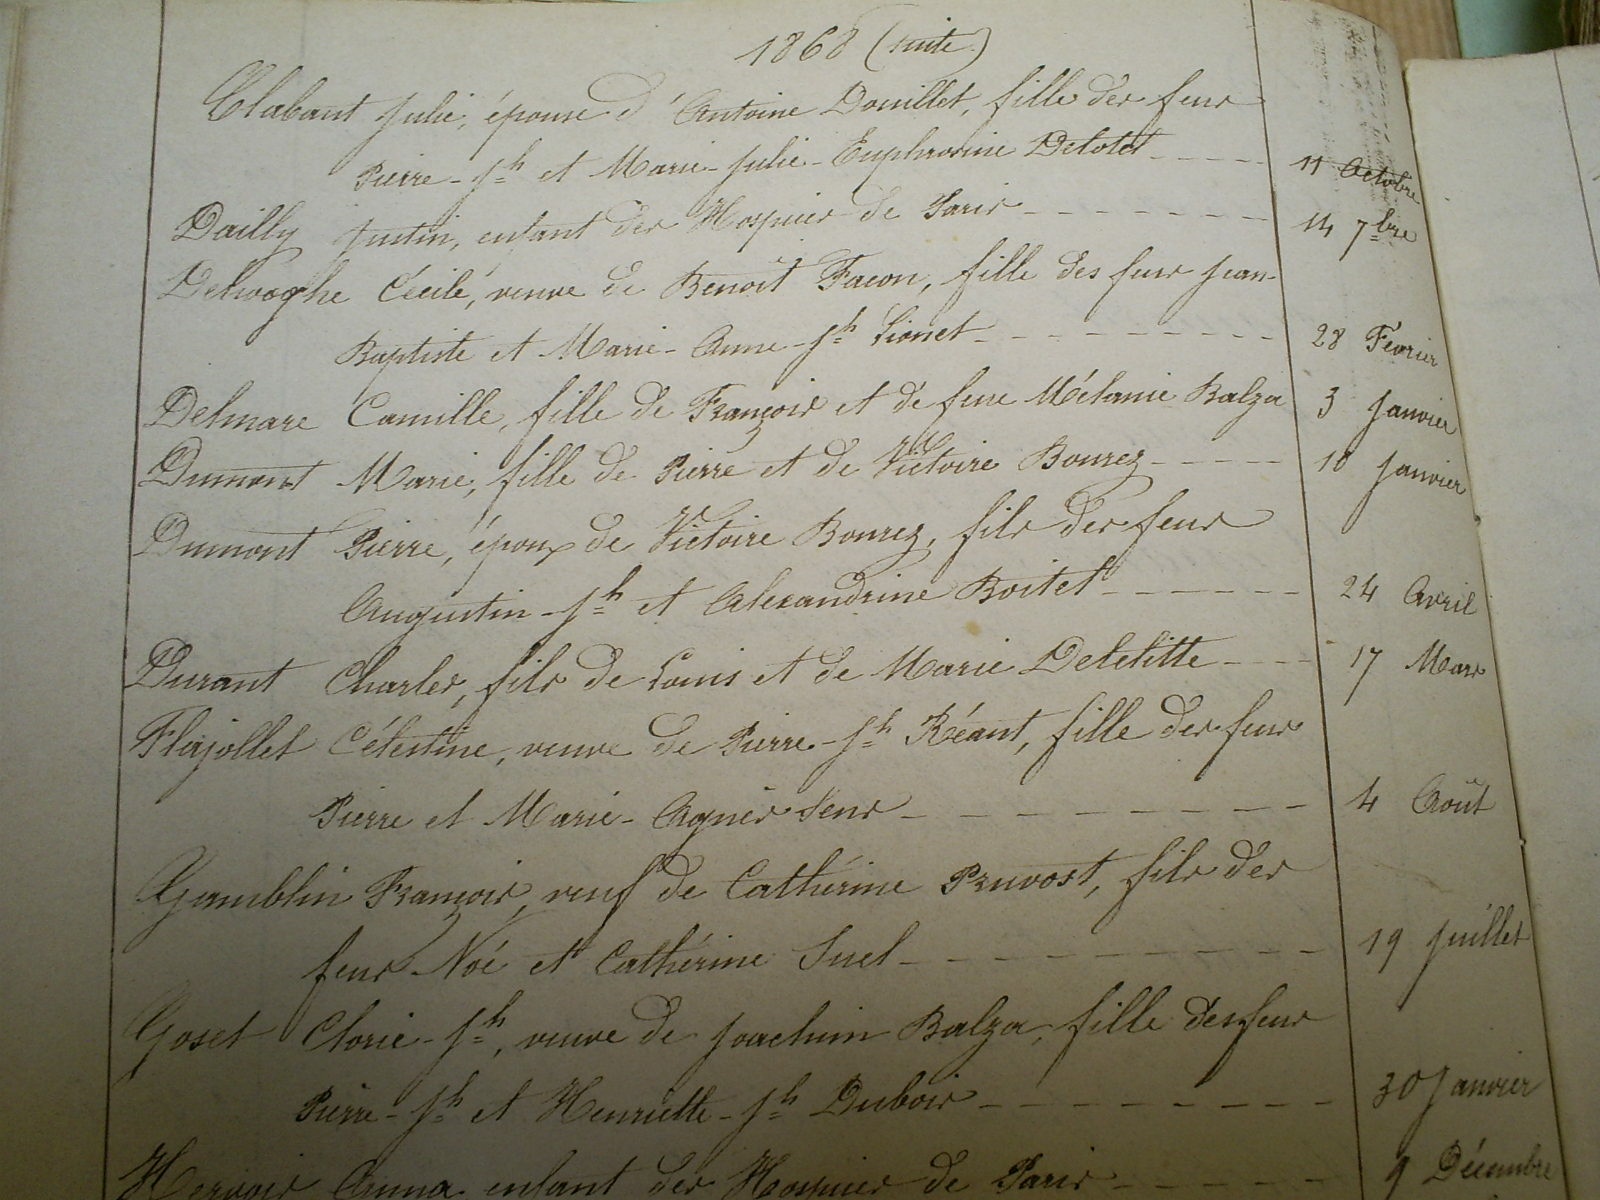 1868 (suite)
Clabaut Julie, épouse d'Antoine Douillet, fille des feus
Pierre-Jh et Marie-Julie-Euphrosine Delotel - - - - 11 Octobre
Dailly Justin, enfant des Hospices de Paris - - - - - - - 14 7bre
Cécile, veuve de Benoît Facon, fille des feus Jean-
Baptiste et Marie-Anne-Jh Lionet - - - - - - - - - 28 Février
Delmare Camille, fille de François et de feue Mélanie Balza 3 Janvier
Dumont Marie, fille de Pierre et de Victoire Bourez - - - - - 18 Janvier
Dumont Pierre, époux de Victoire Bourez, fils des feus
Augustin-Jh et Alexandrine Boitel - - - - - - 24 Avril
Durant Charles, fils de Louis et de Marie Delelitte - - - - 17 Mars
Flajollet Célestine, veuve de Pierre-Jh Réant, fille des feus
Pierre et Marie-Agnès Sens - - - - - - - - - 4 Août
Gamblin François, veuf de Cathérine Pruvost, fils des
feus Noé et Cathérine Suel - - - - - - - - - 19 Juillet
Goset Clorie-Jh, veuve de Joachim Balza, fille des feus
Pierre-Jh et Henriette-Jh Dubois - - - - - - - - 30 Janvier
Hervoir Anna enfant des Hospices de Paris - - - - - - 9 Décembre